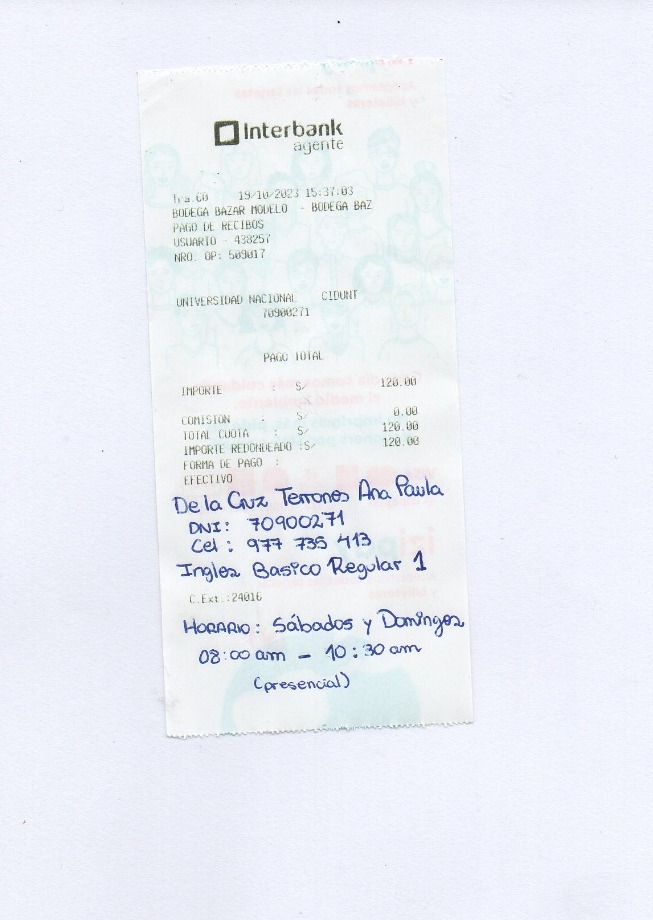 Interbank
agente
Tra.CO 19/10/2023 15:37:03
BODEGA BAZAR MODELO - BODEGA BAZ
PAGO DE RECIBOS
USUARIO - 438257
NRO. OP: 509017
UNIVERSIDAD NACIONAL CIDUNT
70900271
PAGO TOTAL
IMPORTE : S/ 120.00
COMISION : S/ 0.00
TOTAL CUOTA : S/ 120.00
IMPORTE REDONDEADO :S/ 120.00
FORMA DE PAGO :
EFECTIVO
De la Cruz Terrones Ana Paula
DNI: 70900271
Cel: 977 735 413
Ingles Basico Regular 1
C.Ext.:24016
HORARIO: Sábados y Domingos
08:00 am - 10:30 am
(presencial)